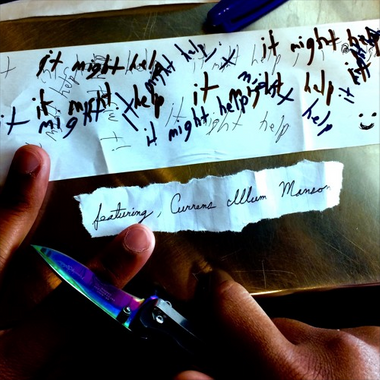 it might help might help it might help
it might help it might help
it might it might help might help
featuring, Currens Illum Manson